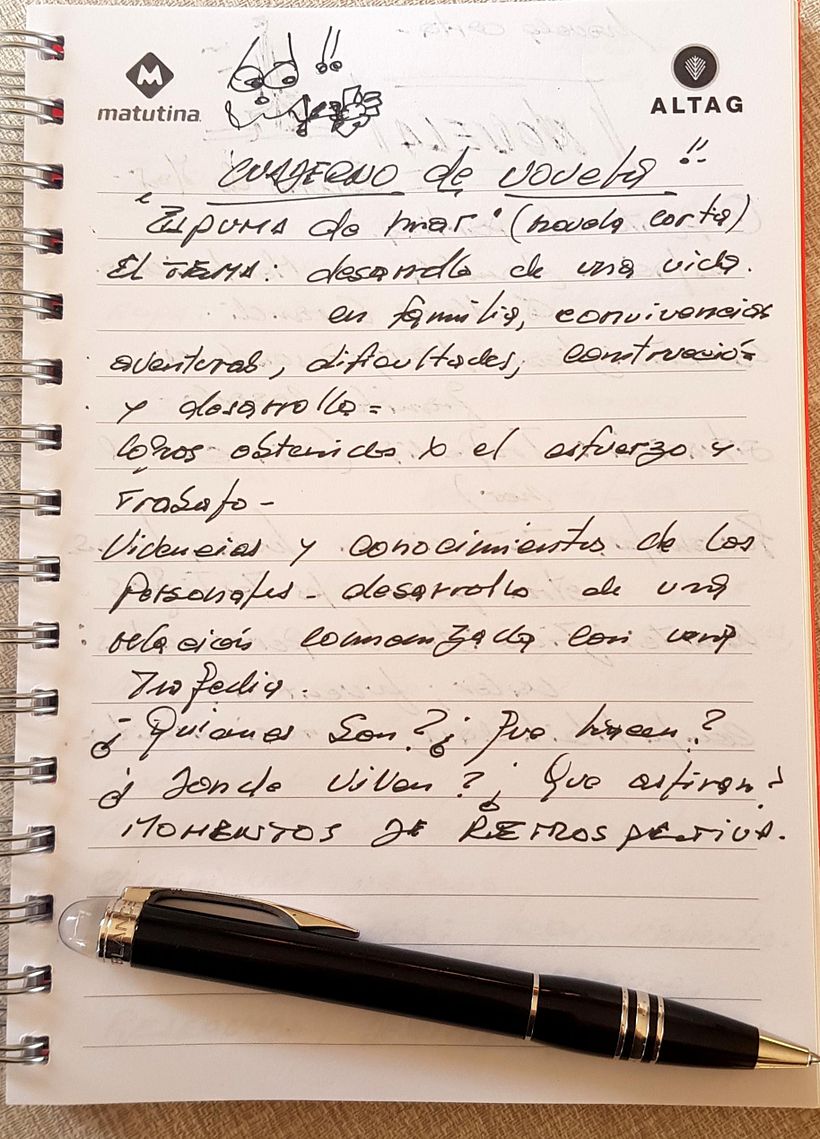 matutina
ALTAG
!!
CUADERNO de novela !!
"Espuma de mar" (novela corta)
El TEMA: desarrollo de una vida.
en familia, convivencias
aventuras, dificultades, construcción
y desarrollo =
logros obtenidos x el esfuerzo y
Trabajo -
Vivencias y conocimientos de los
Personajes - desarrollo de una
relación comenzada con una
Tragedia.
¿Quienes son? ¿Que hacen?
¿Donde viven? ¿Que aspiran?
MOMENTOS DE RETROSPECTIVA.
BLANC